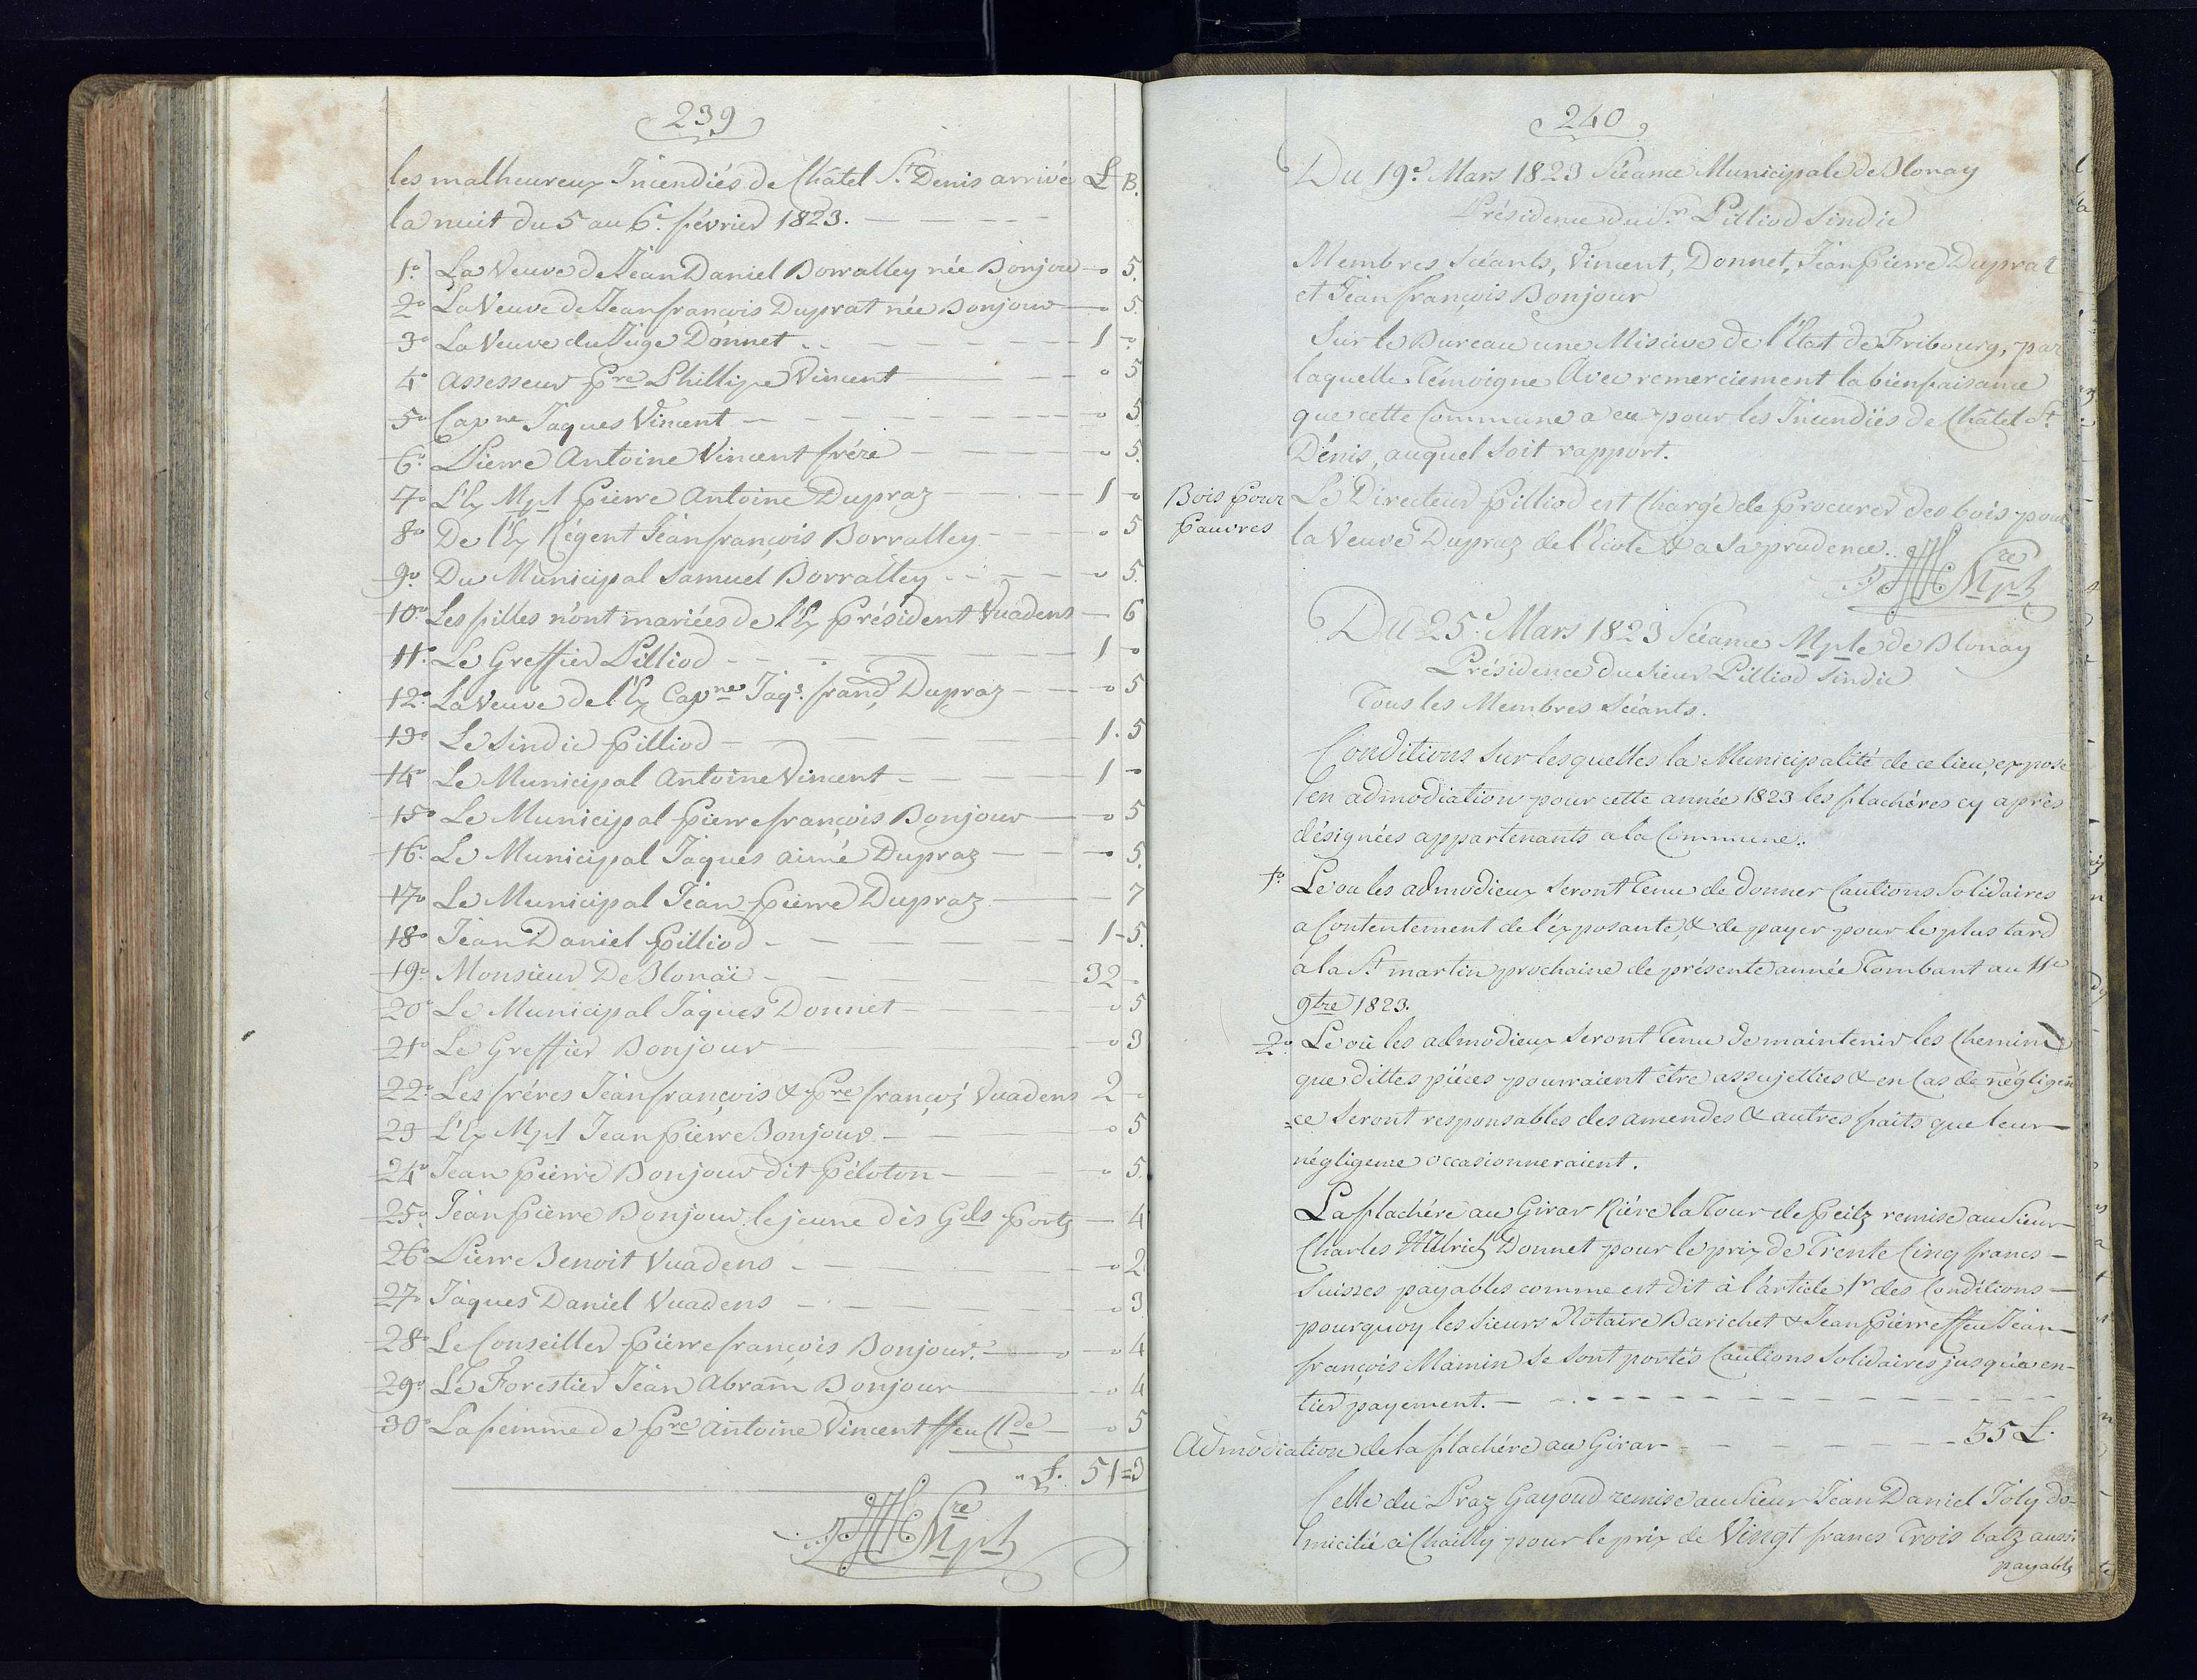 239
les malheureux Incendiés de Châtel St. Denis arrivé L B.
la nuit du 5 au 6e. février 1823.
1o. La Veuve de Jean Daniel Borralley née Bonjour - o 5.
2o La Veuve de Jean françois Duprat née Bonjour - o 5.
3o La Veuve du Juge Donnet - 1 o
4o assesseur Pre Phillipe Vincent - o 5
5o Capne Jaques Vincent - o 5
6o. Pierre Antoine Vincent frére - o 5.
7o L'Ex Mpl Pierre Antoine Dupraz - 1 o
8o De l'Ex Régent Jean françois Borralley - o 5
9o. Du Municipal Samuel Borralley - o 5.
10o. Les filles n'ont mariées de l'Ex Président Vuadens - 6
11o. Le Greffier Pilliod - 1 o
12o. La Veuve de l'Ex Capne Jaqs. franç Dupraz - o 5
13o Le Sindic Pilliod - 1. 5
14o Le Municipal Antoine Vincent - 1 o
15o Le Municipal Pierre françois Bonjour - o 5
16o. Le Municipal Jaques aimé Dupraz - o 5.
17o Le Municipal Jean Pierre Dupraz - 7
18o Jean Daniel Pilliod - 1 - 5.
19o. Monsieur De Blonaÿ - 32 -
20o Le Municipal Jaques Donnet - o 5
21o Le Greffier Bonjour - o 3
22o. Les fréres Jean françois & Pre françs Vuadens 2 -
23 L'Ex Mpl Jean Pierre Bonjour - o 5
24o Jean Pierre Bonjour dit Péloton - o 5.
25o. Jean Pierre Bonjour le jeune dès Gds Ports - 4
26o Pierre Benoit Vuadens - o 2
27o Jaques Daniel Vuadens - o 3
28o Le Conseiller Pierre françois Bonjour. - o 4
29o Le Forestier Jean Abram Bonjour - o 4
30o La femme de Pre Antoine Vincent ffeu Cde - o 5
L. 51 = 3
Gre Mpl
240
Du 19e. Mars 1823 Séance Municipale de Blonay
Présidence du Sr Pilliod Sindic
Membres Séants, Vincent, Donnet, Jean Pierre Duprat
et Jean françois Bonjour
Sur le Bureau une Missive de l'Etat de Fribourg, par
laquelle Témoigne Avec remerciement la bienfaisance
que cette Commune a eu pour les Incendiés de Châtel St.
Dénis, auquel soit rapport.
Bois pour Le Directeur Pilliod est Chargé de Procurer des bois pour
Pauvres la Veuve Dupraz de l'Ecole & a Sa prudence..
Gre Mpl
Du 25e. Mars 1823 Séance Mple de Blonay
Présidence du Sieur Pilliod Sindic
Tous les Membres Séants.
Conditions Sur lesquelles la Municipalité de ce lieu, expose
en admodiation pour cette année 1823 les flachéres cy après
désignées appartenants a la Commune..
1o. Le ou les admodieux Seront Tenu de donner Cautions Solidaires
a Contentement de l'exposante, & de payer pour le plus tard
a la St martin prochaine de présente année Tombant au 11e
9bre 1823.
2o. Le ou les admodieux Seront Tenu de maintenir les Chemins
que dittes piéces pourraient être assujetties & en Cas de négligen
=ce Seront responsables des amendes & autres faits que leur
négligence occasionneraient.
La flachére au Girar Riére la Tour de Peilz remise au Sieur
Charles Hulrich Donnet pour le prix de Trente Cinq francs
Suisses payables comme est dit à l'article 1r des Conditions
pourquoy les Sieurs Notaire Barichet & Jean Pierre ffeu Jean
françois Mamin Se Sont portés Cautions Solidaires jusqu'a en-
tier payement.
Admodiation de la flachére au Girar - 35 L.
Celle du Praz Gayoud remise au Sieur Jean Daniel Joly do-
micilié à Chailly pour le prix de Vingt francs Trois batz aussi
payables